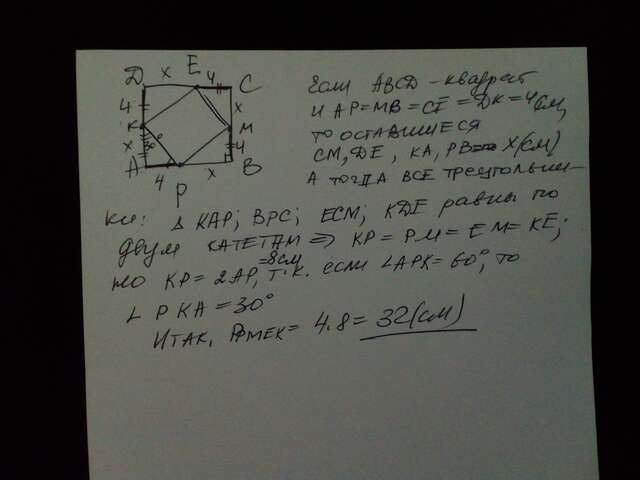 D x E 4 C
4 x
K M
x 30° 4
A 4 P x B
Если ABCD – квадрат
и AP=MB=CE=DK=4см,
то оставшиеся
CM, DE, KA, PB = x(см)
А тогда все треугольни-
ки: Δ KAP; BPC; ECM; KDE равны по
двум катетам ⇒ KP=PM=EM=KE;
но KP=2AP, т.к. если ∠APK=60°, то
=8см
∠ PKA=30°
Итак, PMEK= 4·8=32(см)